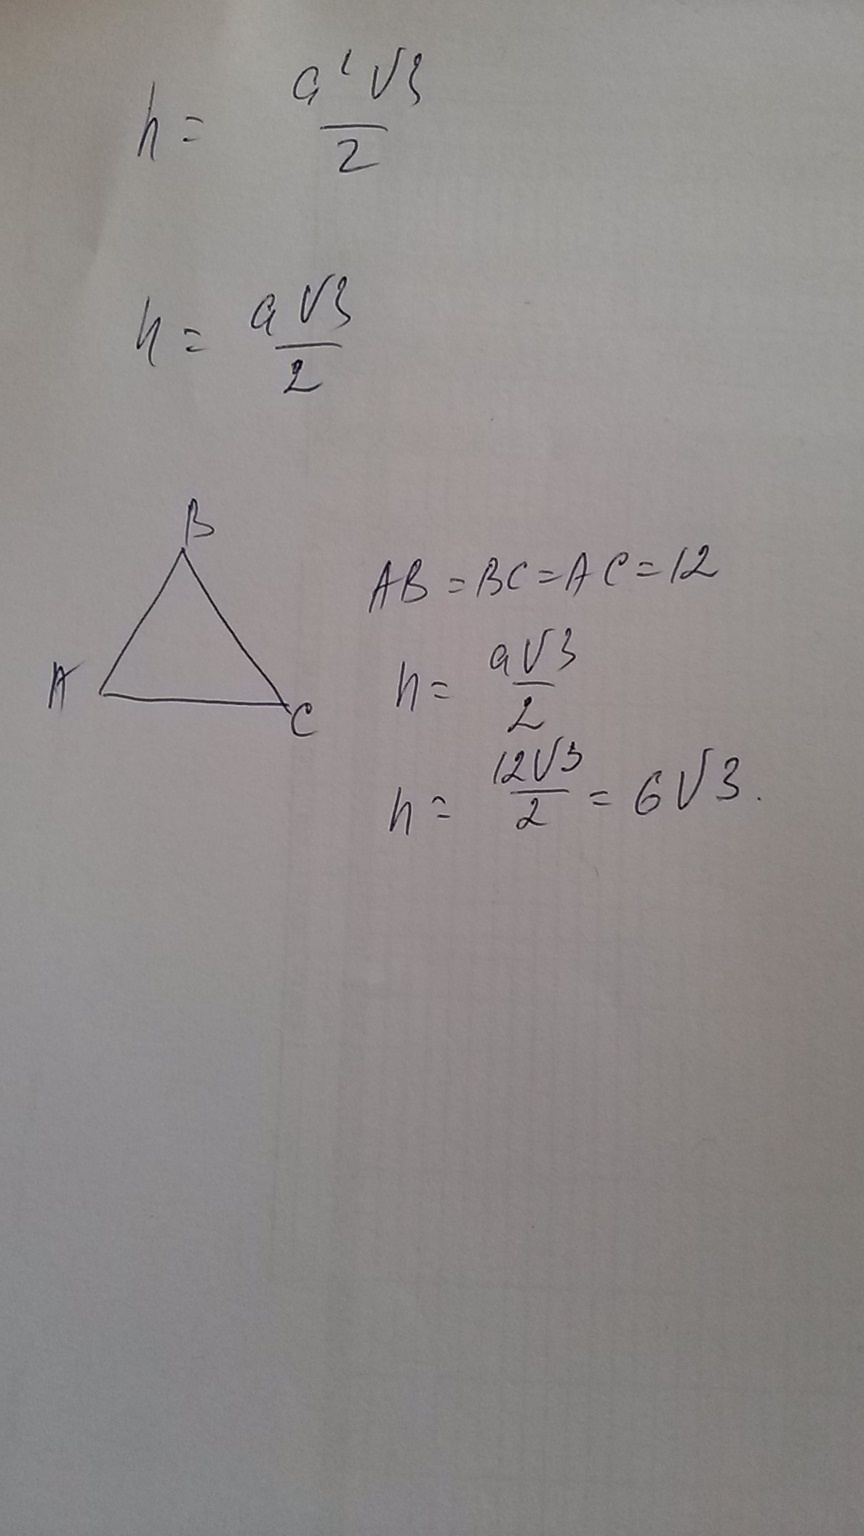 h = a²√3 / 2
h = a√3 / 2
B
A
C
AB = BC = AC = 12
h = a√3 / 2
h = 12√3 / 2 = 6√3.